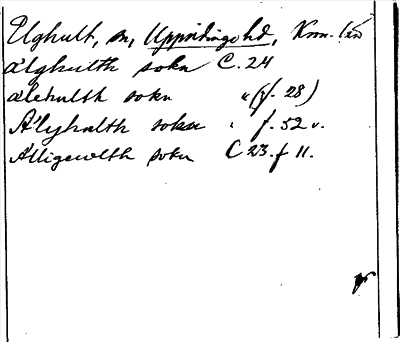 Älghult, sn, Uppvidinge hd, Kron. län
älghulth sokn C. 24
älehulth sokn " (f. 28)
Älyhulth sokn " f. 52 v.
Älligewlth sokn C 23. f 11.